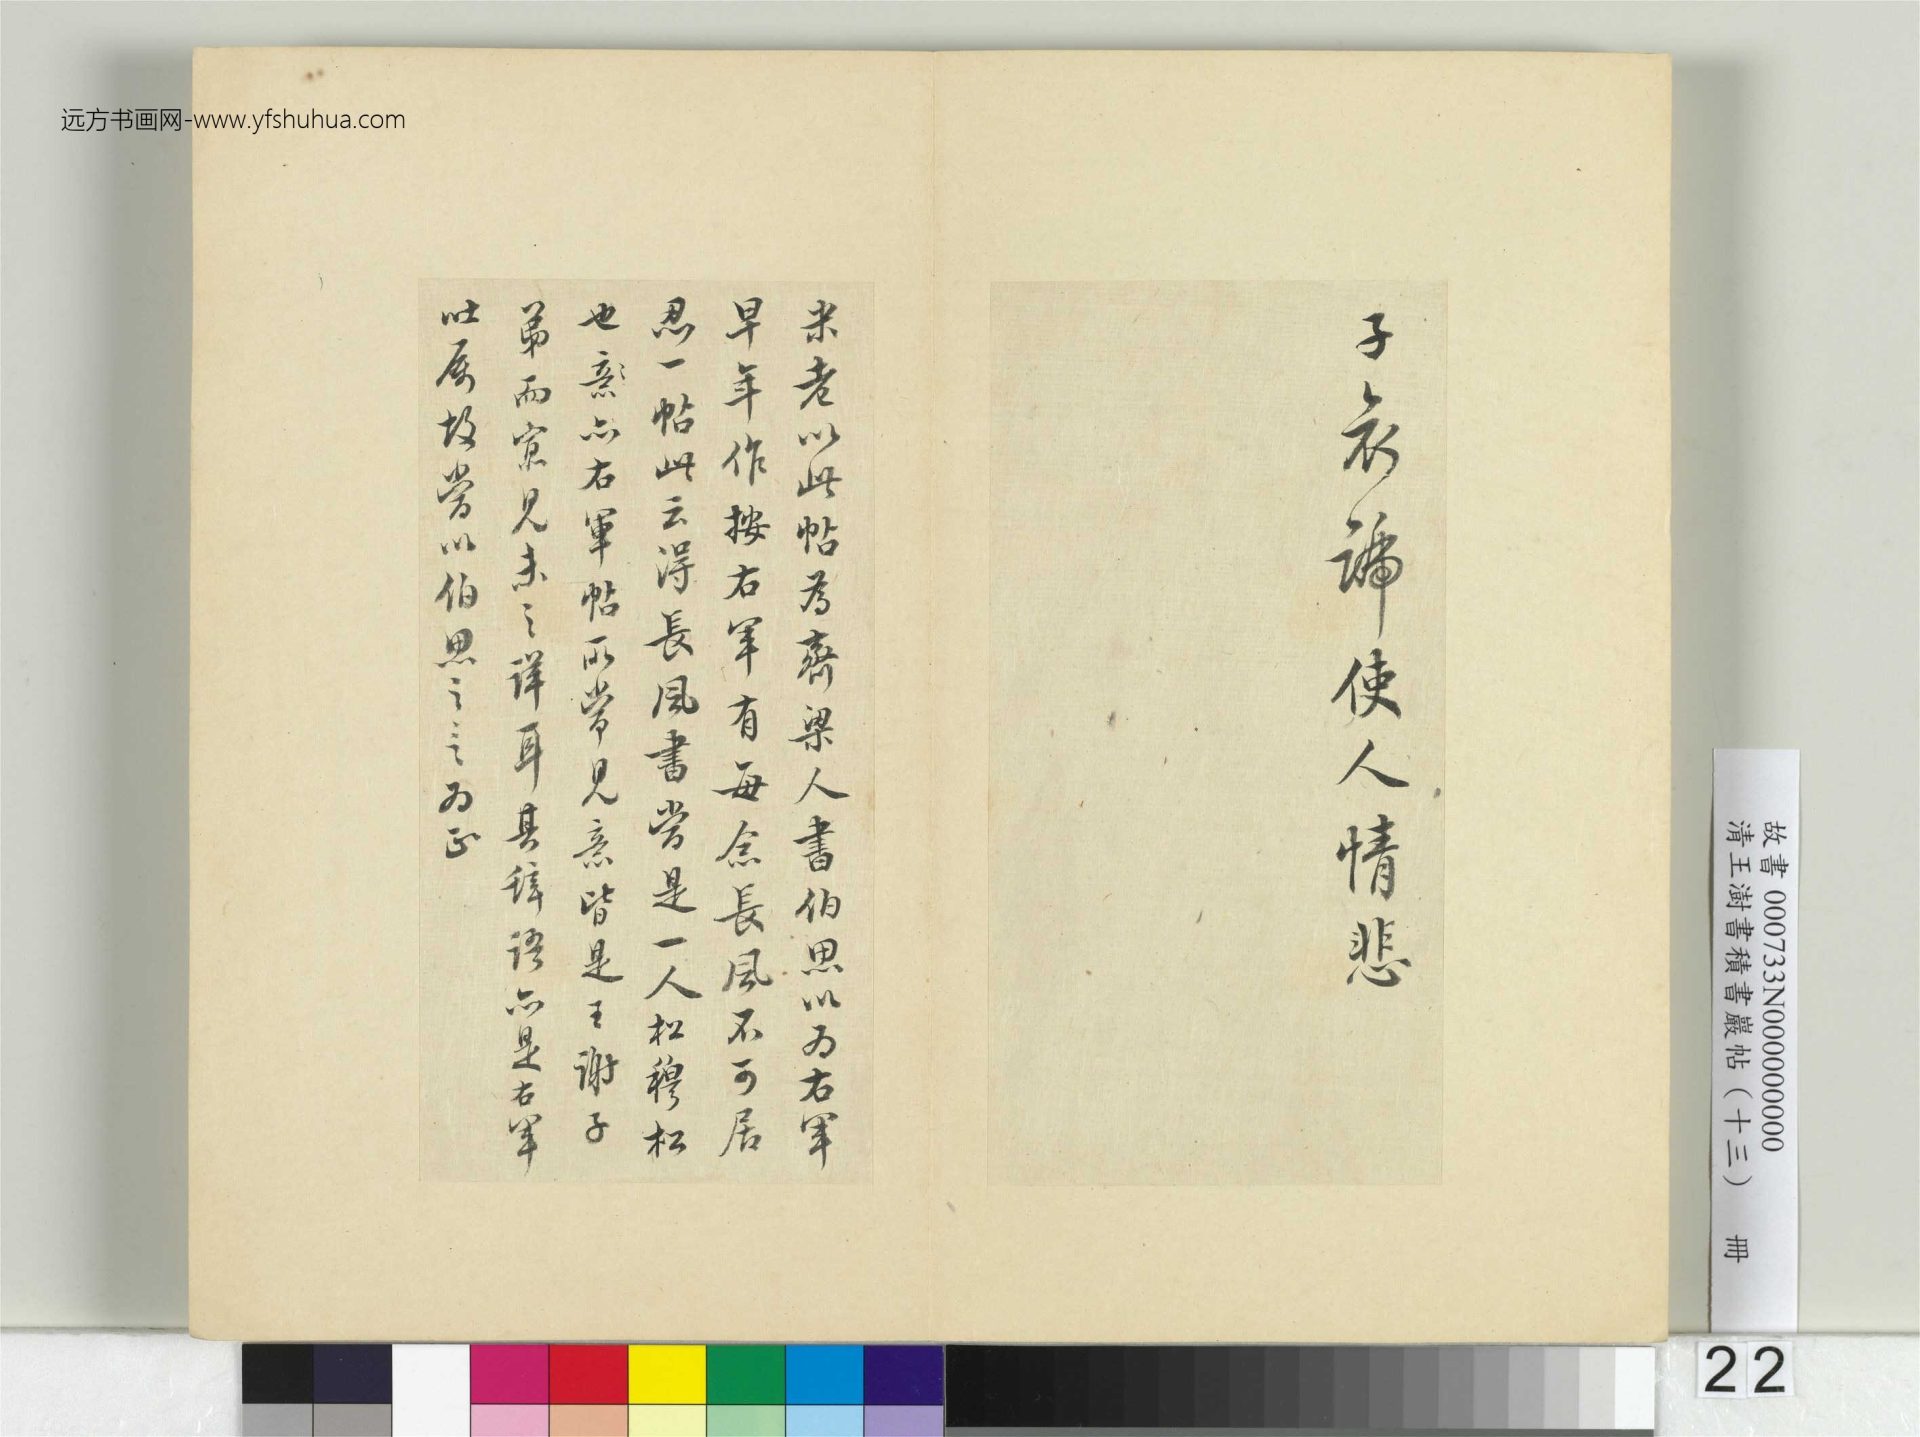 远方书画网-www.yfshuhua.com
子哀號使人情悲
米老以此帖為齊梁人書伯思以为右軍
早年作按右軍有每念長風不可居
忍一帖此云得長風書當是一人松穆松
也意亦右軍帖所常見意皆是王謝子
弟而實見未之詳耳其辭語亦是右軍
吐屬故當以伯思之言为正
故書 000733N000000000
清王澍書積書巖帖（十三） 冊
22